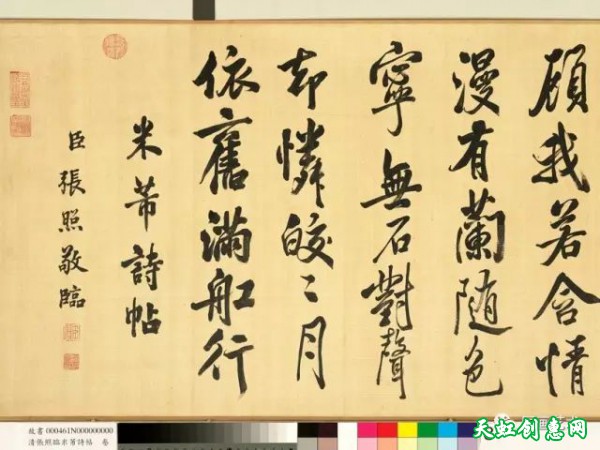 顧我若含情
漫有蘭随色
寧無石對聲
却憐皎〻月
依舊滿舡行
米芾詩帖
臣張照敬臨
故書 000461N000000000
清張照臨米芾詩帖 卷
天虹创惠网